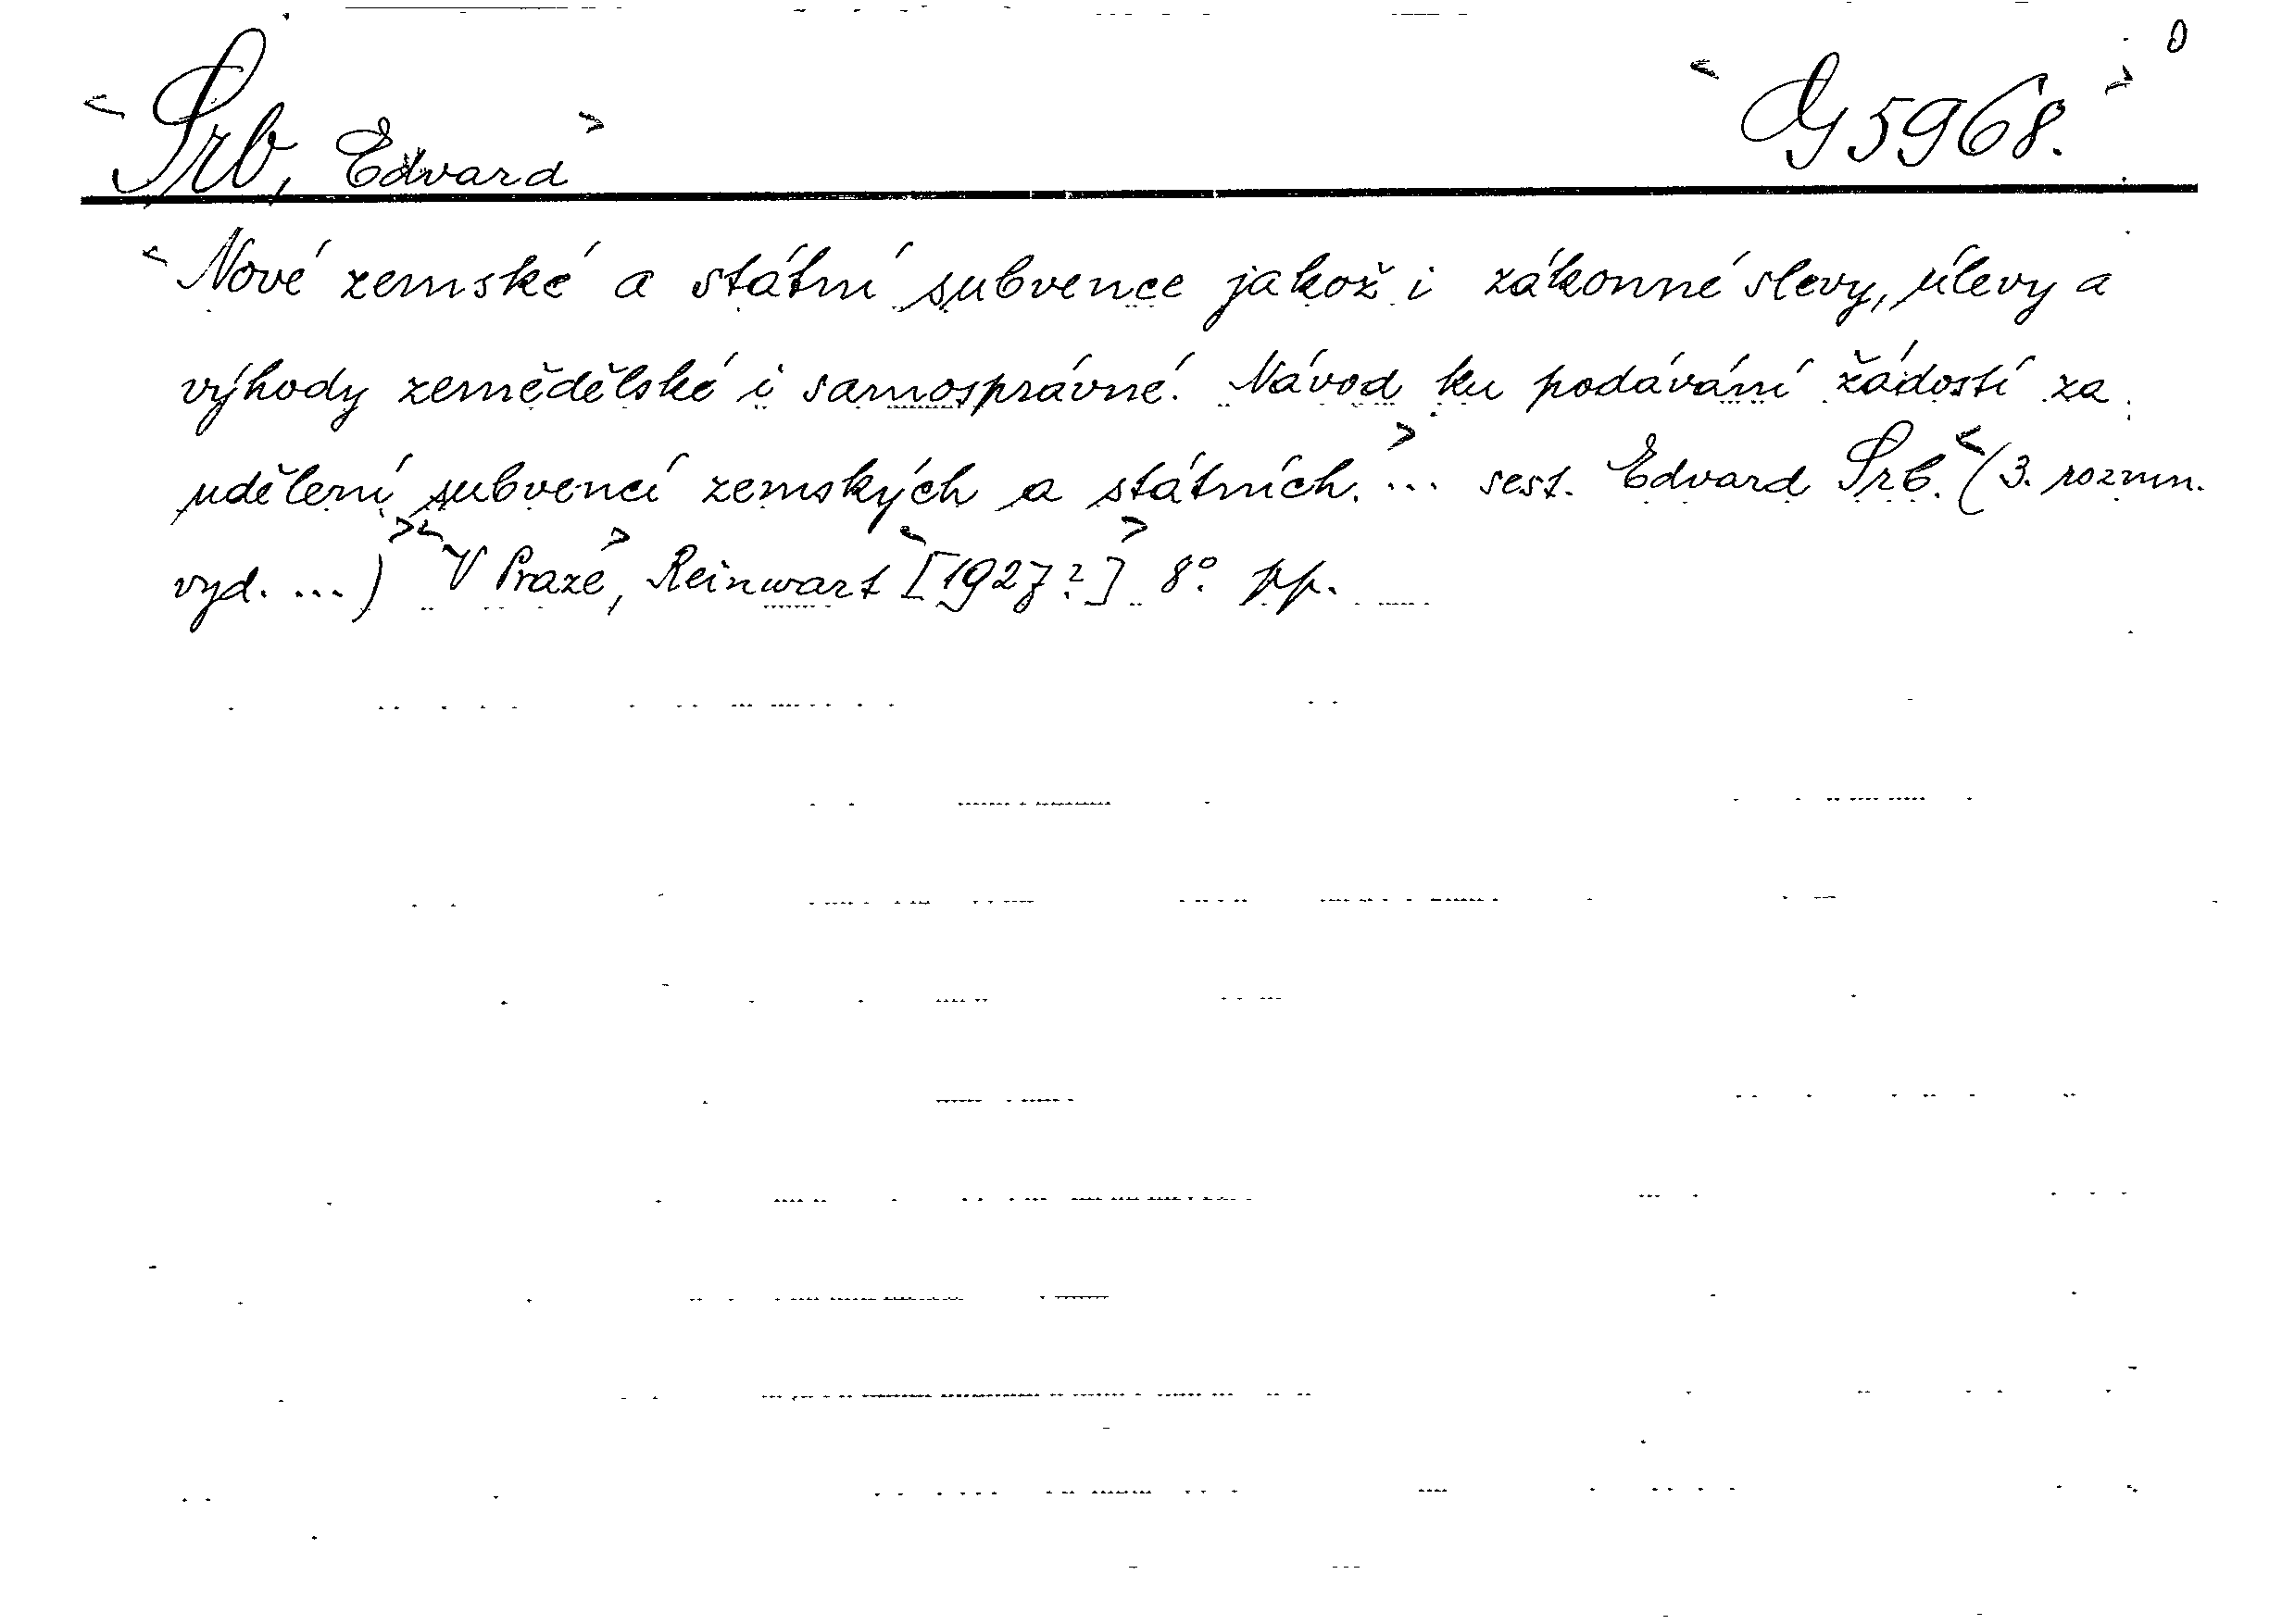 <Srb, Edvard> <Cg 5968.>
<Nové zemské a státní subvence jakož i zákonné slevy, úlevy a
výhody zemědělské i samosprávné. Návod ku podávání žádostí za
udělení subvencí zemských a státních.> ... sest. Edvard Srb. <(3. rozmn.
vyd. ...)> <V Praze>, Reinwart <[1927?]> 8° pp.